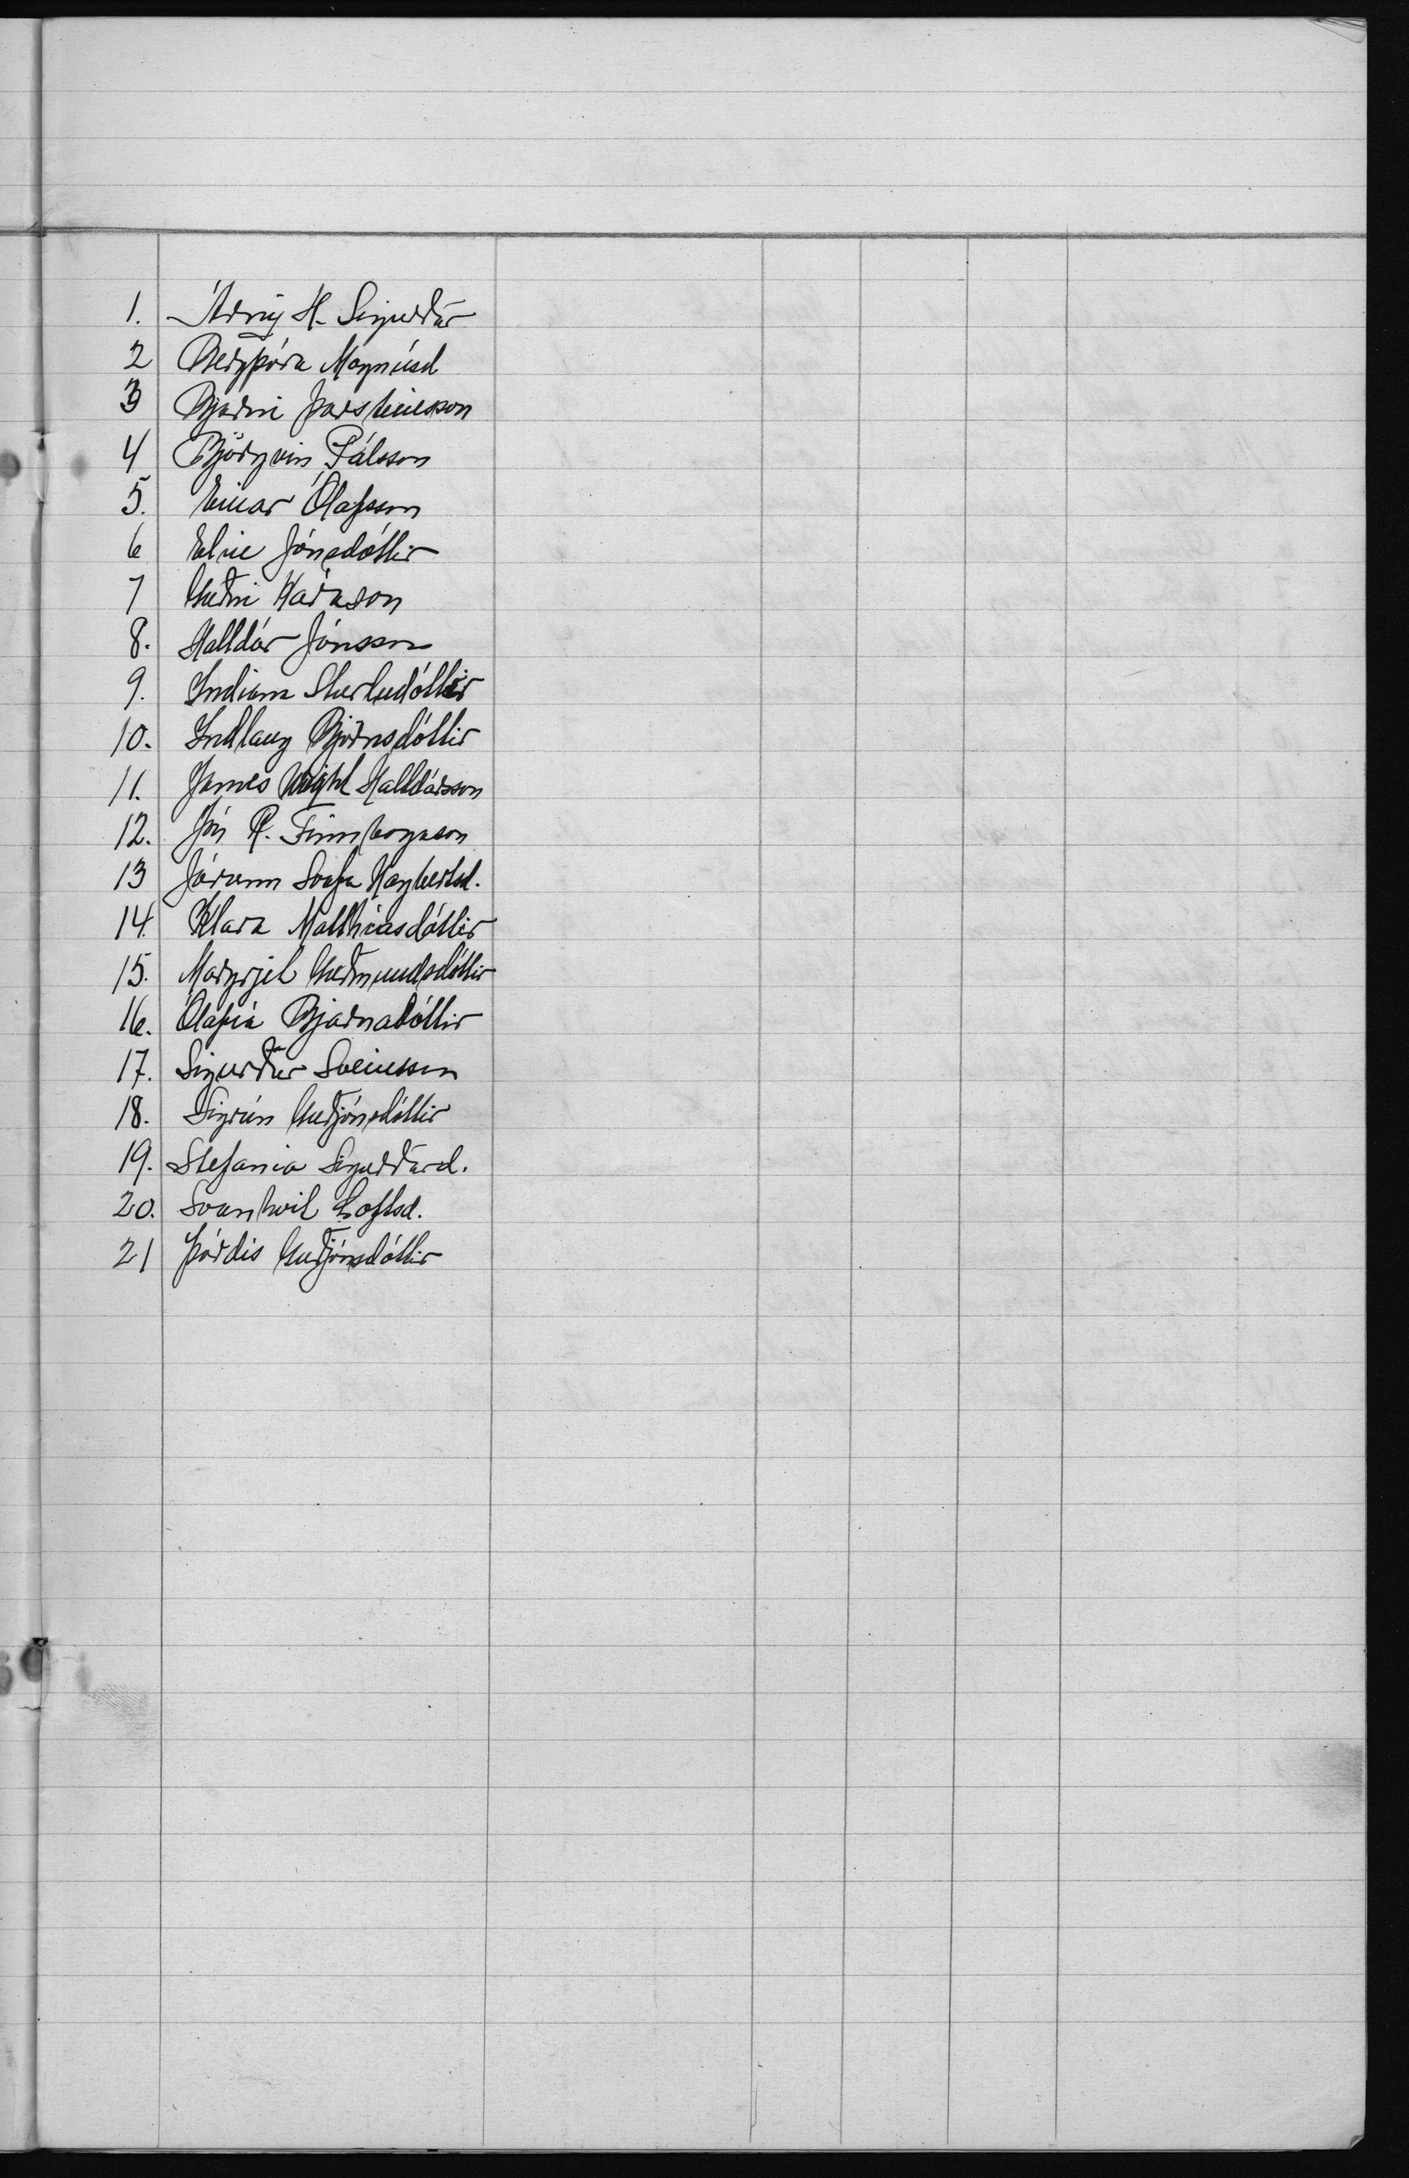 1. Árný H. Sigurðar
2 Bergþóra Magnúsd
3 Bjarni Þorsteinsson
4 Björgvin Pálsson
5. Einar Ólafsson
6 Elín Jónsdóttir
7 Guðni Kárason
8. Halldór Jónsson
9. Indíana Sturludóttir
10. Indlaug Björnsdóttir
11. James Wight Halldórsson
12. Jón R. Finnbogason
13 Jórunn Svafa Hagbertsd.
14. Klara Matthíasdóttir
15. Margrjet Guðmundsdóttir
16. Ólafía Bjarnadóttir
17. Sigurður Sveinsson
18. Sigrún Guðjónsdóttir
19. Stefania Sigurðard.
20. Svanhvit Loftsd.
21 Þórdís Guðjónsdóttir